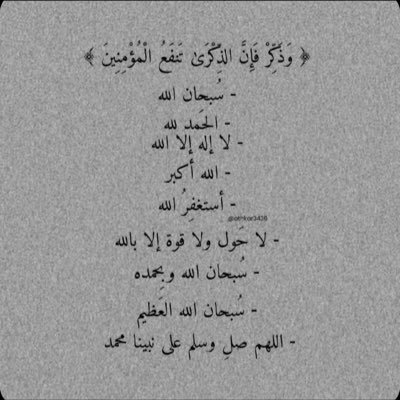 ﴿ وَذَكِّرْ فَإِنَّ الذِّكْرَىٰ تَنفَعُ الْمُؤْمِنِينَ ﴾
- سُبحان الله
- الحَمد لله
- لا إله إلا الله
- الله أكبر
- أستغفِرُ الله
@athkar3436
- لا حَول ولا قوة إلا بالله
- سُبحان الله وبِحمده
- سُبحان الله العَظيم
- اللهم صلِ وسلم على نبينا محمد